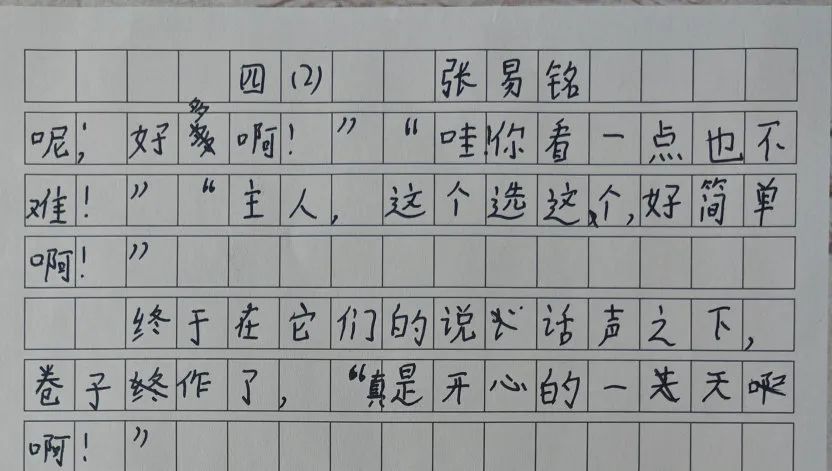 四(2) 张易铭
呢；好多啊！” “哇！你看一点也不
难！” “主人，这个选这个，好简单
啊！”
终于在它们的说话声之下，
卷子终作了，“真是开心的一天啊
啊！”